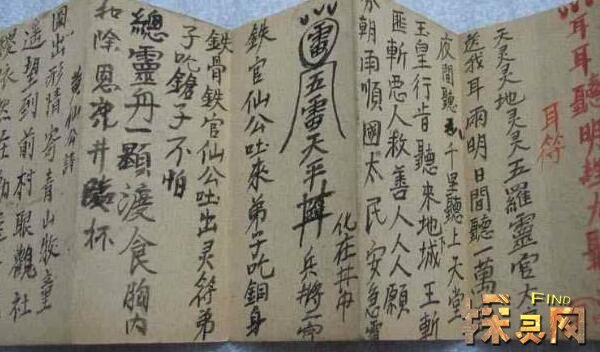 耳耳聽明九聽
耳符
天灵灵地灵灵五羅靈官大
送我耳雨明日間聽一萬
夜間聽千里聽上天堂
玉皇行肯聽来地城王斬
匪斬恶人救善人人人願
朝雨順國太民安急雷
化在井中
雷五雷天平陣兵將
鉄官仙公吐來弟子吃銅身
鉄骨鉄官仙公吐出灵符弟
子吃鎗子不怕
總靈丹一顆渡食胸内
和除恩井杯
黄仙公
國出形情寄青山牧童
遥望到前村眼觀社
依然在
FIND
探灵网